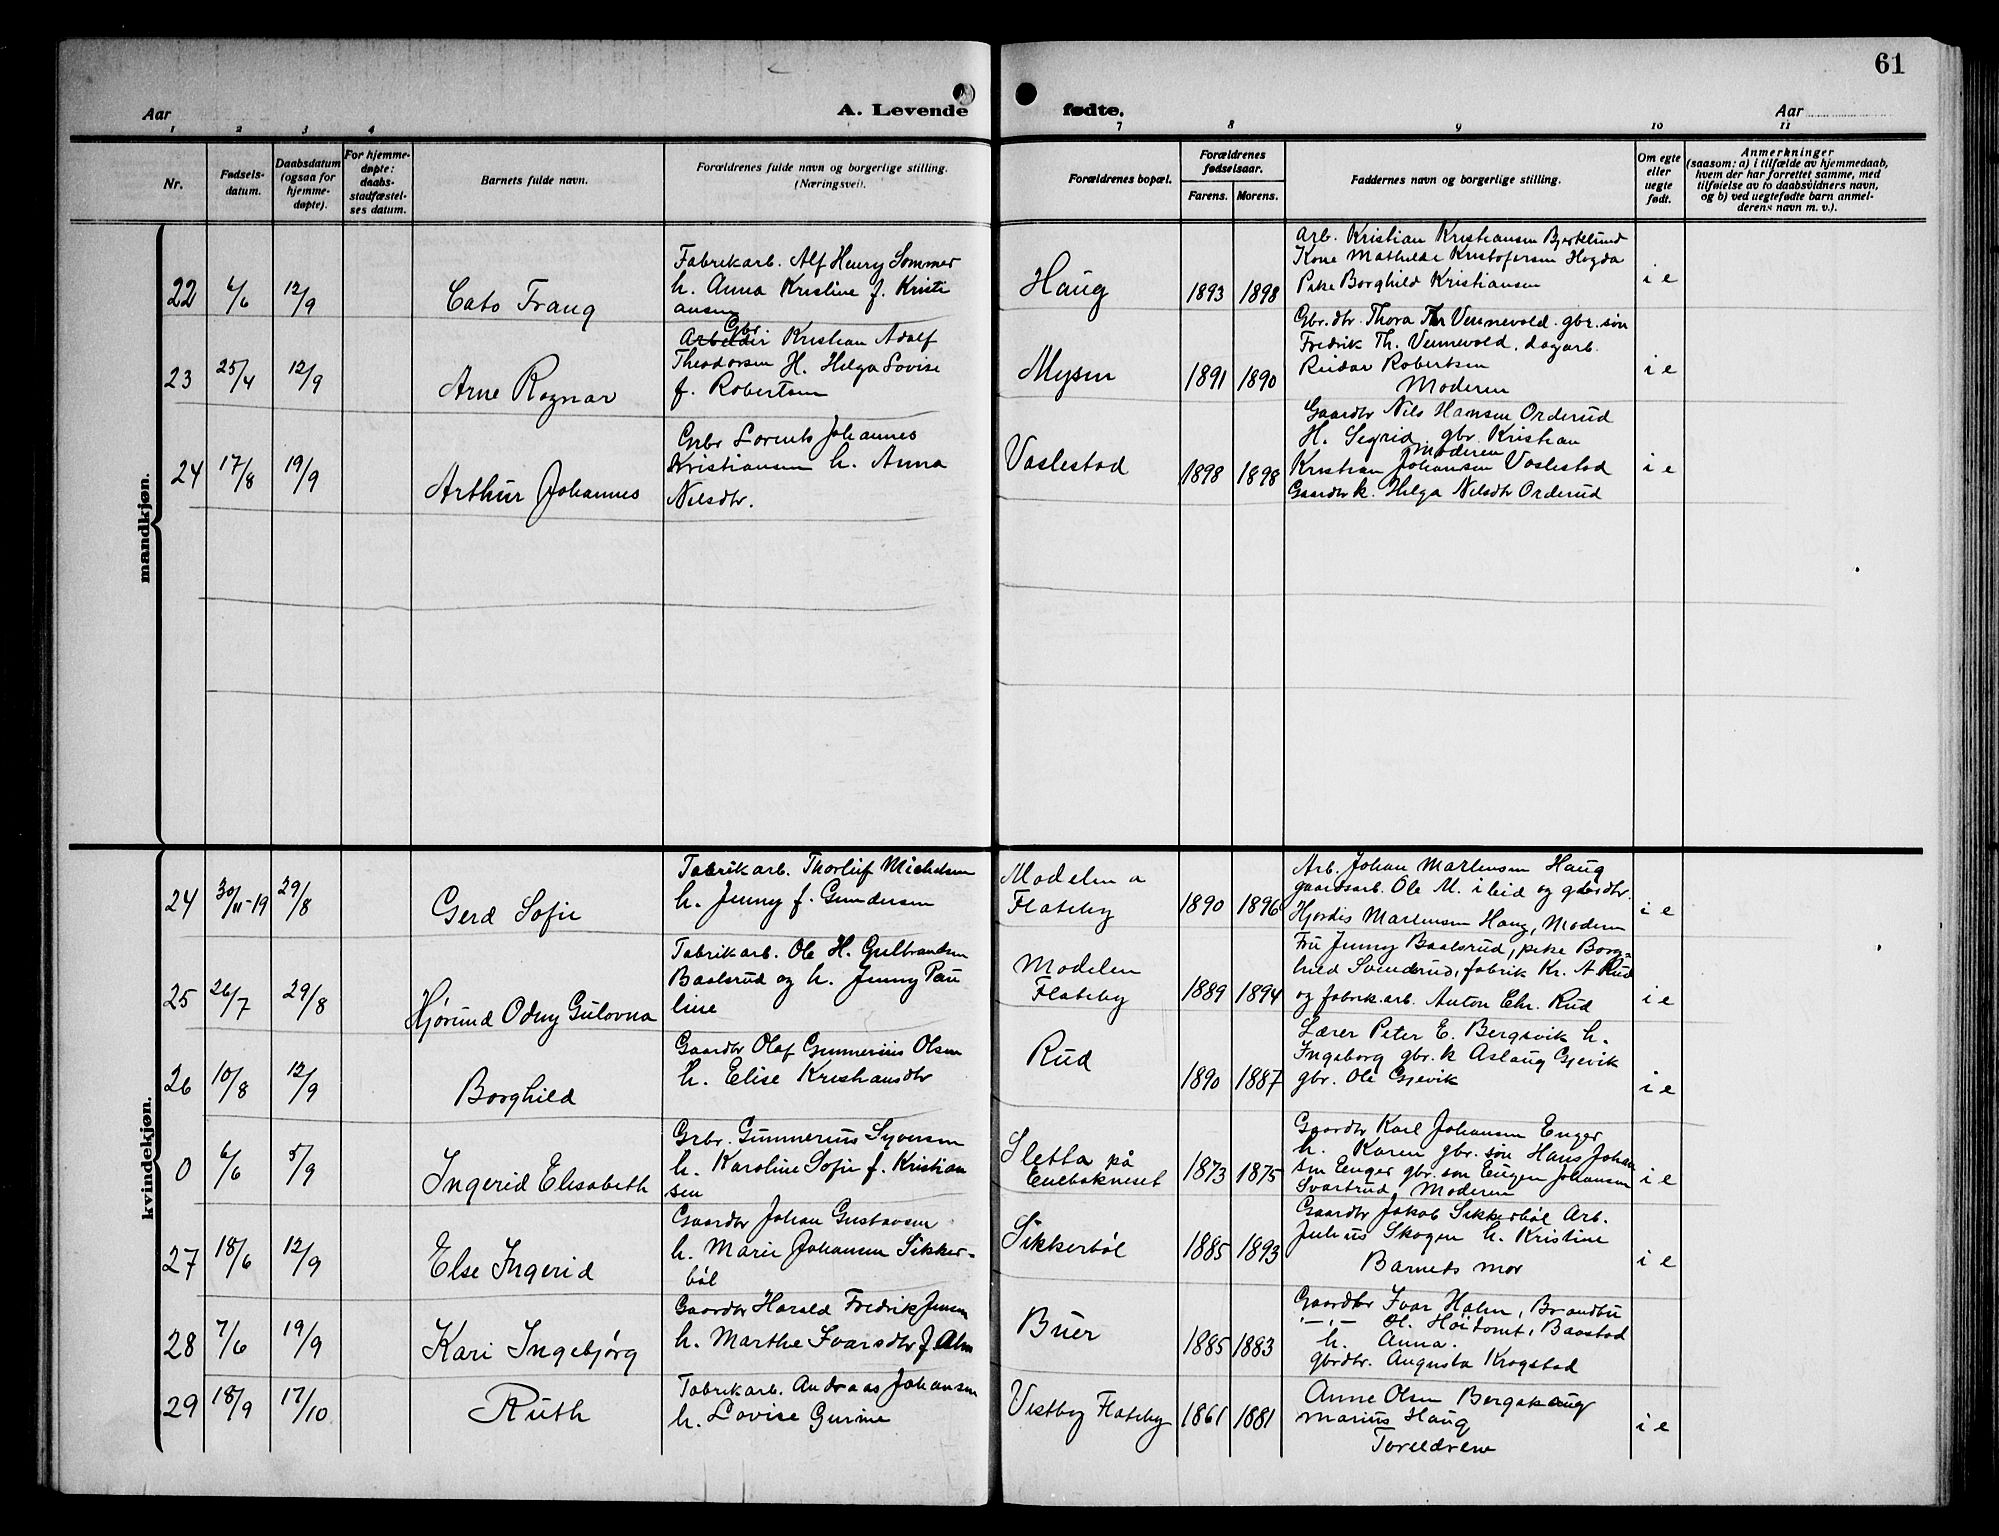 61
Aar
A. Levende
fødte.
Aar
1 2 3 4
7 8 9 10 11
Nr.
Fødsels-
datum.
Daabsdatum
(ogsaa for
hjemme-
døpte).
For hjemme-
døpte:
daabs-
stadfæstel-
ses datum.
Barnets fulde navn.
Forældrenes fulde navn og borgerlige stilling.
(Næringsvei).
Forældrenes bopæl.
Forældrenes
fødselsaar.
Farens. Morens.
Faddernes navn og borgerlige stilling.
Om egte
eller
uegte
født.
Anmerkninger
(saasom: a) i tilfælde av hjemmedaab,
hvem der har forrettet samme, med
tilføielse av to daabsvidners navn,
og b) ved uegtefødte barn anmel-
derens navn m. v.).
mandkjøn.
22 6/6 12/9
Cato Frang
Fabrikarb. Alf Henry Sommer
h. Anna Kristine f. Kristi
ansen
Haug
1893 1898
Arb. Kristian Kristiansen Bjerklund
Kone Mathilde Kristofersen Hogda
Pike Borghild Kristiansen
i e
23 25/4 12/9
Arne Ragnar
Gbr.
Arbeider Kristian Adolf
Theodorsen H. Helga Lovise
f. Robertsen
Mysen
1891 1890
Gbr.dtr. Thora Th Vennevold. gbr. søn
Fredrik Th. Vennevold. dagarb.
Reidar Robertsen
Moderen
i e
24 17/8 19/9
Arthur Johannes
Grbr Lorents Johannes
Kristiansen h. Anna
Nilsdtr.
Vaslestad
1898 1898
Gaardbr Nils Hansen Orderud
H. Segrid, gbr. Kristian
Moderen
Kristian Johansen Vaslestad
Gaardbr k. Helga Nilsdtr Orderud
i e
kvindekjøn.
24 30/11-19 29/8
Gerd Sofie
Fabrikarb. Thorleif Michelsen
h. Jenny f. Gundersen
Modelen a
Flateby
1890 1896
Arb. Johan Martensen Haug
gaardsarb. Ole M. ibid og gbrdtr.
Hjordis Martensen Haug, Moderen
i e
25 26/7 29/8
Hjørund Odny Gulovna
Fabrikarb. Ole H. Gulbrandsen
Baalsrud og h. Jenny Pau
line
Modelen
Flateby
1889 1894
Fru Jenny Baalsrud, pike Borg-
hild Svenderud, fabrik Kr. A Rud
og fabrik.arb. Anton Chr. Rud
i e
26 10/8 12/9
Borghild
Gaardbr Olaf Gunnerius Olsen
h. Elise Kristiansdtr
Rud
1890 1887
Lærer Peter E. Bergsvik h.
Ingeborg gbr. k Aslaug Gjevik
gbr. Ole Gjevik
i e
0 6/6 5/9
Ingerid Elisabeth
Grbr. Gunnerius Syversen
h. Karoline Sofie f. Kristian
sen
Sletta på
Enebakneset
1873 1875
Gaardbr Karl Johansen Enger
h. Karen gbr. søn Hans Johan
sen Enger gbr. søn Eugen Johansen
Svartrud, Moderen
i e
27 18/6 12/9
Else Ingerid
Gaardbr Johan Gustavsen
h. Marie Johansen Sikker-
bøl
Sikkerbøl
1885 1893
Gaardbr Jakob Sikkerbøl Arb.
Julius Skogen h. Kristine
Barnets mor
i e
28 7/6 19/9
Kari Ingebjørg
Gaardbr Harald Fredrik Jensen
h. Marthe Ivarsdtr f Alm
Buer
1885 1883
Gaardbr Ivar Holm, Brandbu
-,,- O. Høitomt, Baastad
h. Anna.
gbrdtr. Augusta Krogstad
29 18/9 17/10
Ruth
Fabrikarb. Andreas Johansen
h. Lovise Gurine
Vestby Flateby
1861 1881
Anne Olsen Bergskaug
Marius Haug
Foreldrene
i e